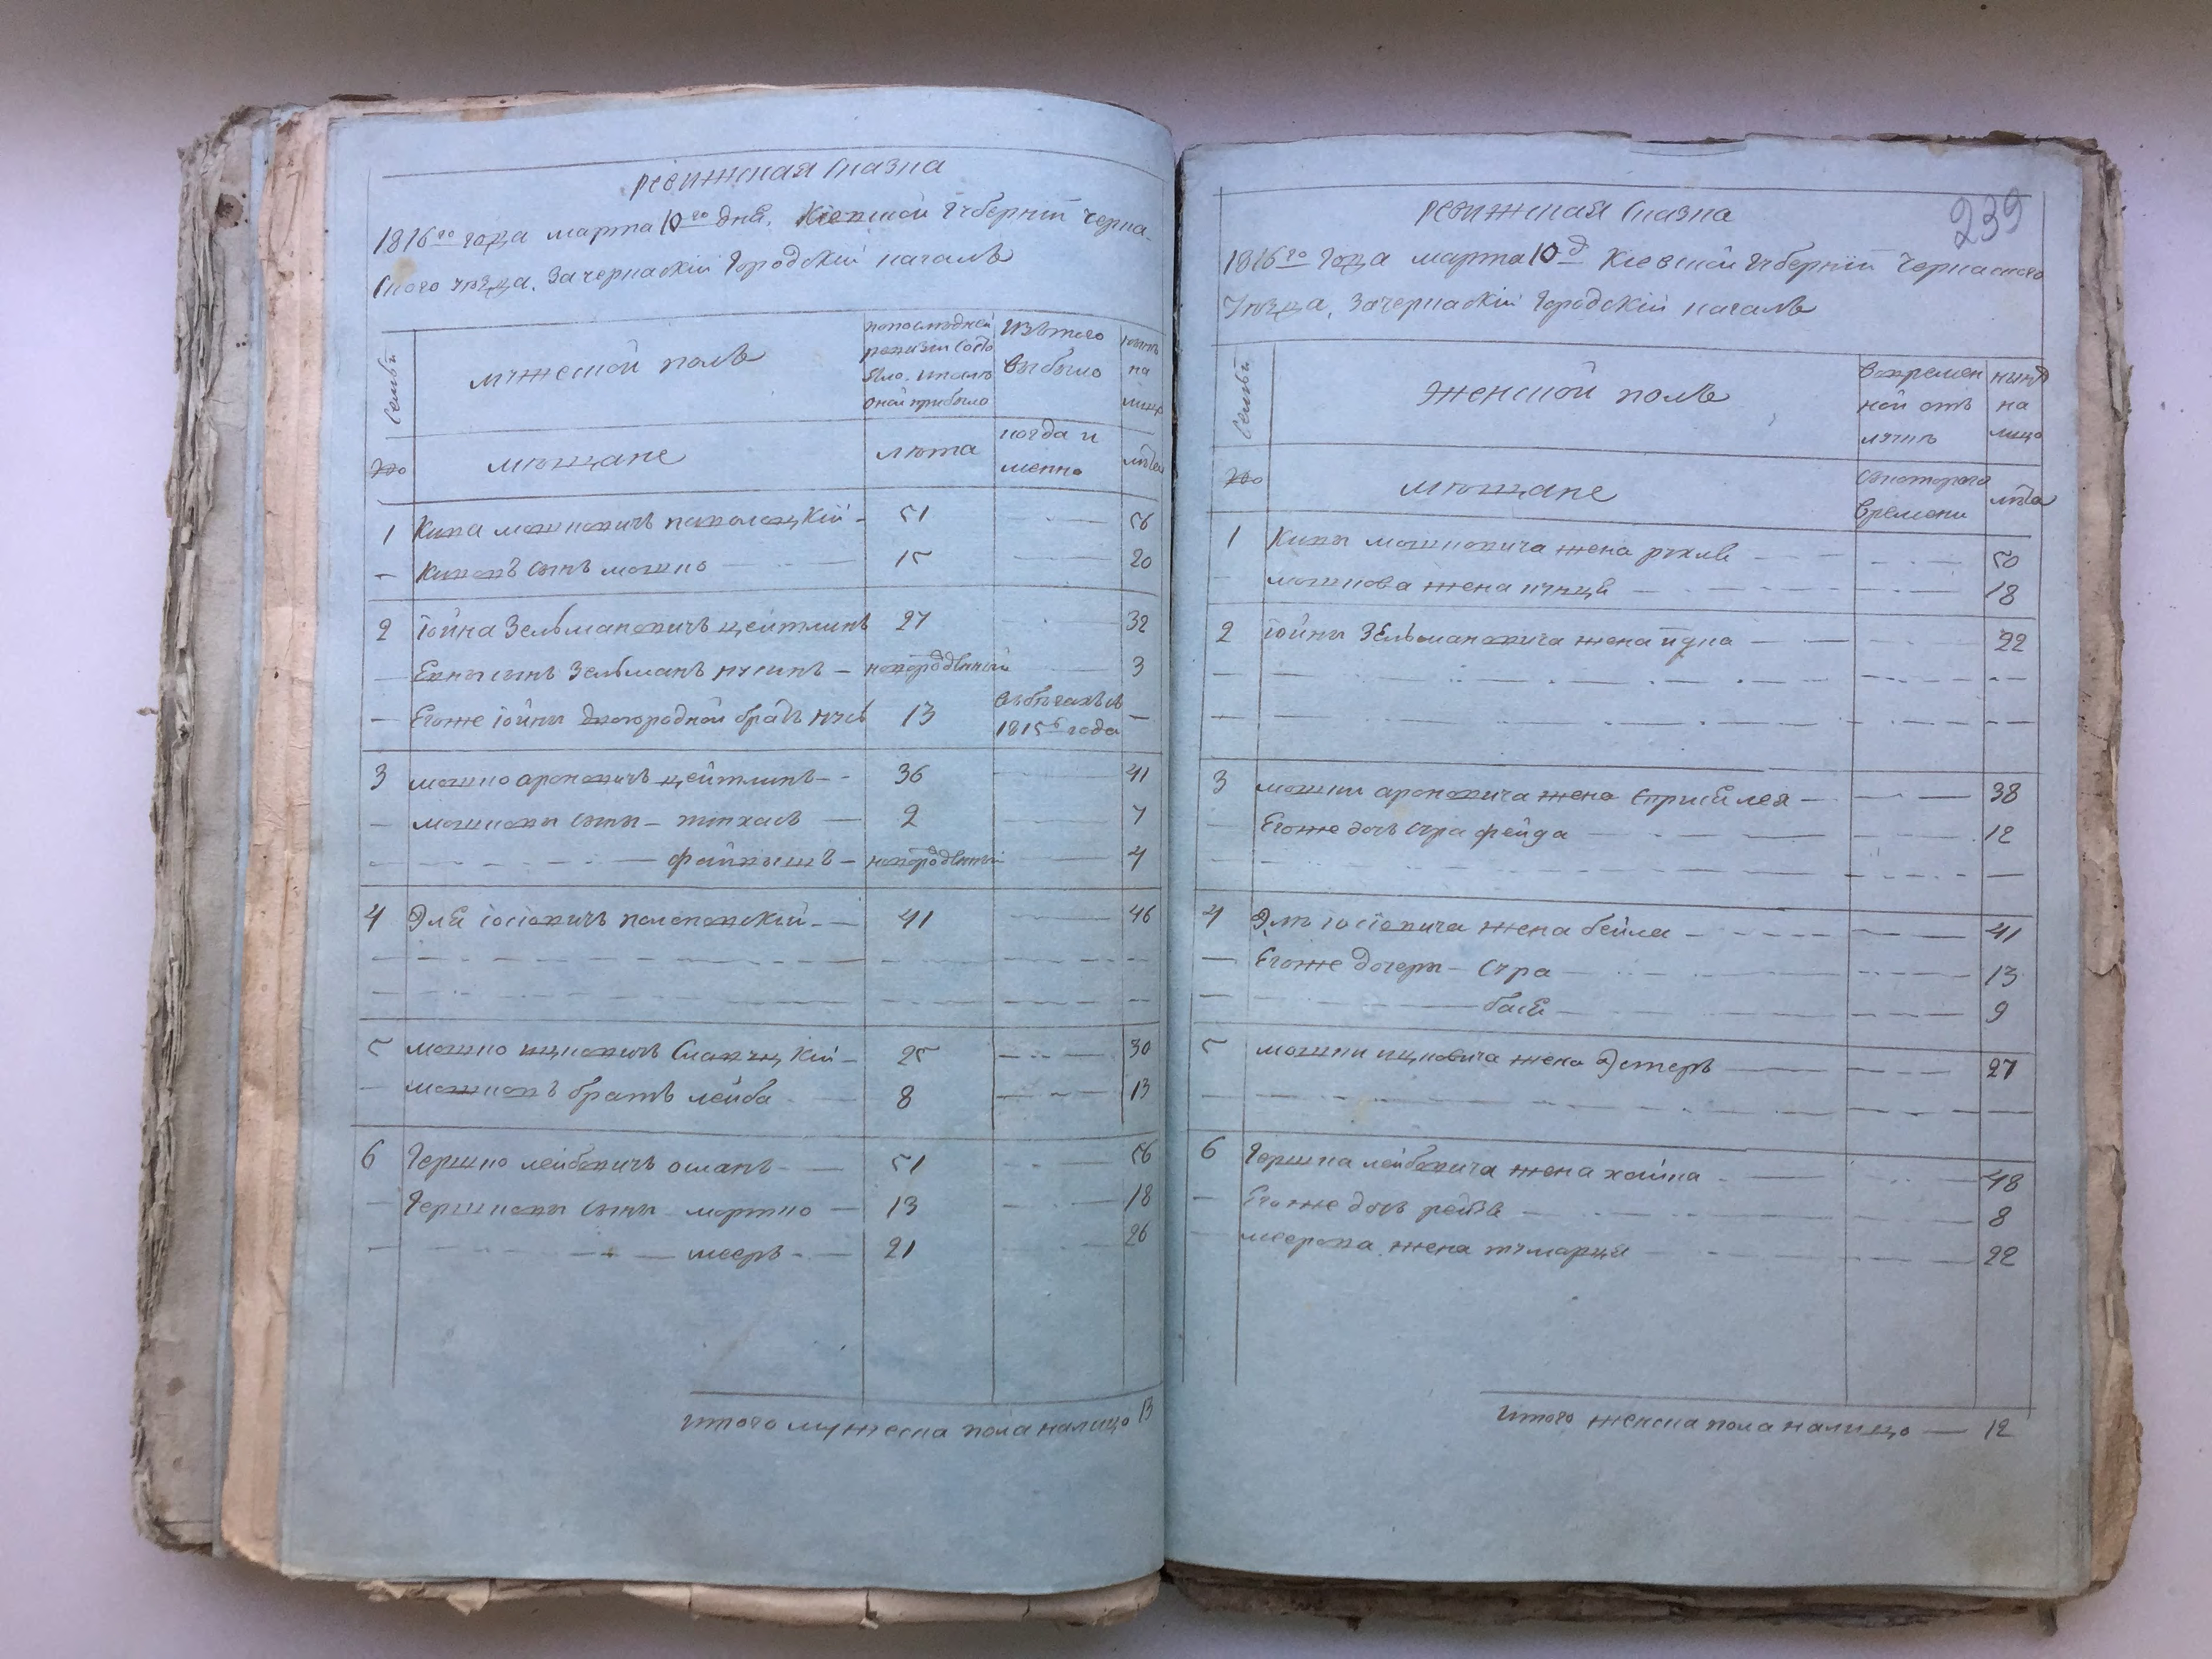 ревижская сказка
1816го года марта 10го дня, Киевской губернїи Черка-
ского уѣзда, За черкаскїй городскїй кагалъ
Семьи
мужеской полъ
по последней
ревизии состо
яло, и после
оной прибыло
Изъ того
выбыло
ныне
на
лицо
№
мещане
лета
когда и
менно
лѣта
1 Кива мошковичъ 51 56
Кивовъ сынъ мошко 15 20
2 Іойна Зельмановичъ цейтлинъ 27 32
сынъ Зельманъ нусинъ новорожденный 3
Егоже іойны двоюродной братъ нусъ 13 въ бегахъ съ
1815г года
3 мошко ароновичъ цейтлинъ 36 41
мошковы сыны пинхасъ 2 7
файвышъ новорожденный 4
4 Эля іосіовичъ 41 46
5 мошко ицковичъ 25 30
мошковъ братъ лейба 8 13
6 Гершко лейбовичъ османъ 51 56
Гершковы сыны мортко 13 18
мееръ 21 26
итого мужеска пола налицо 13
239
ревижская сказка
1816го года марта 10д Киевской губернїи Черкаского
уѣзда, За черкаскїй городскїй кагалъ
Семьи
женской полъ
во времен
ной отъ
лучке
ныне
на
лицо
№
мещане
с которого
времени
лѣта
1 Кивы мошковича жена рухля 50
мошкова жена 18
2 іойны Зельмановича жена 22
3 мошки ароновича жена 38
Егоже дочь сура фейда 12
4 Эли іосіовича жена бейла 41
Егоже дочери Сура 13
бася 9
5 мошки ицковича жена Эстеръ 27
6 Гершка лейбовича жена хайка 48
Егоже дочь рейзя 8
меерова жена 22
Итого женска пола налицо 12